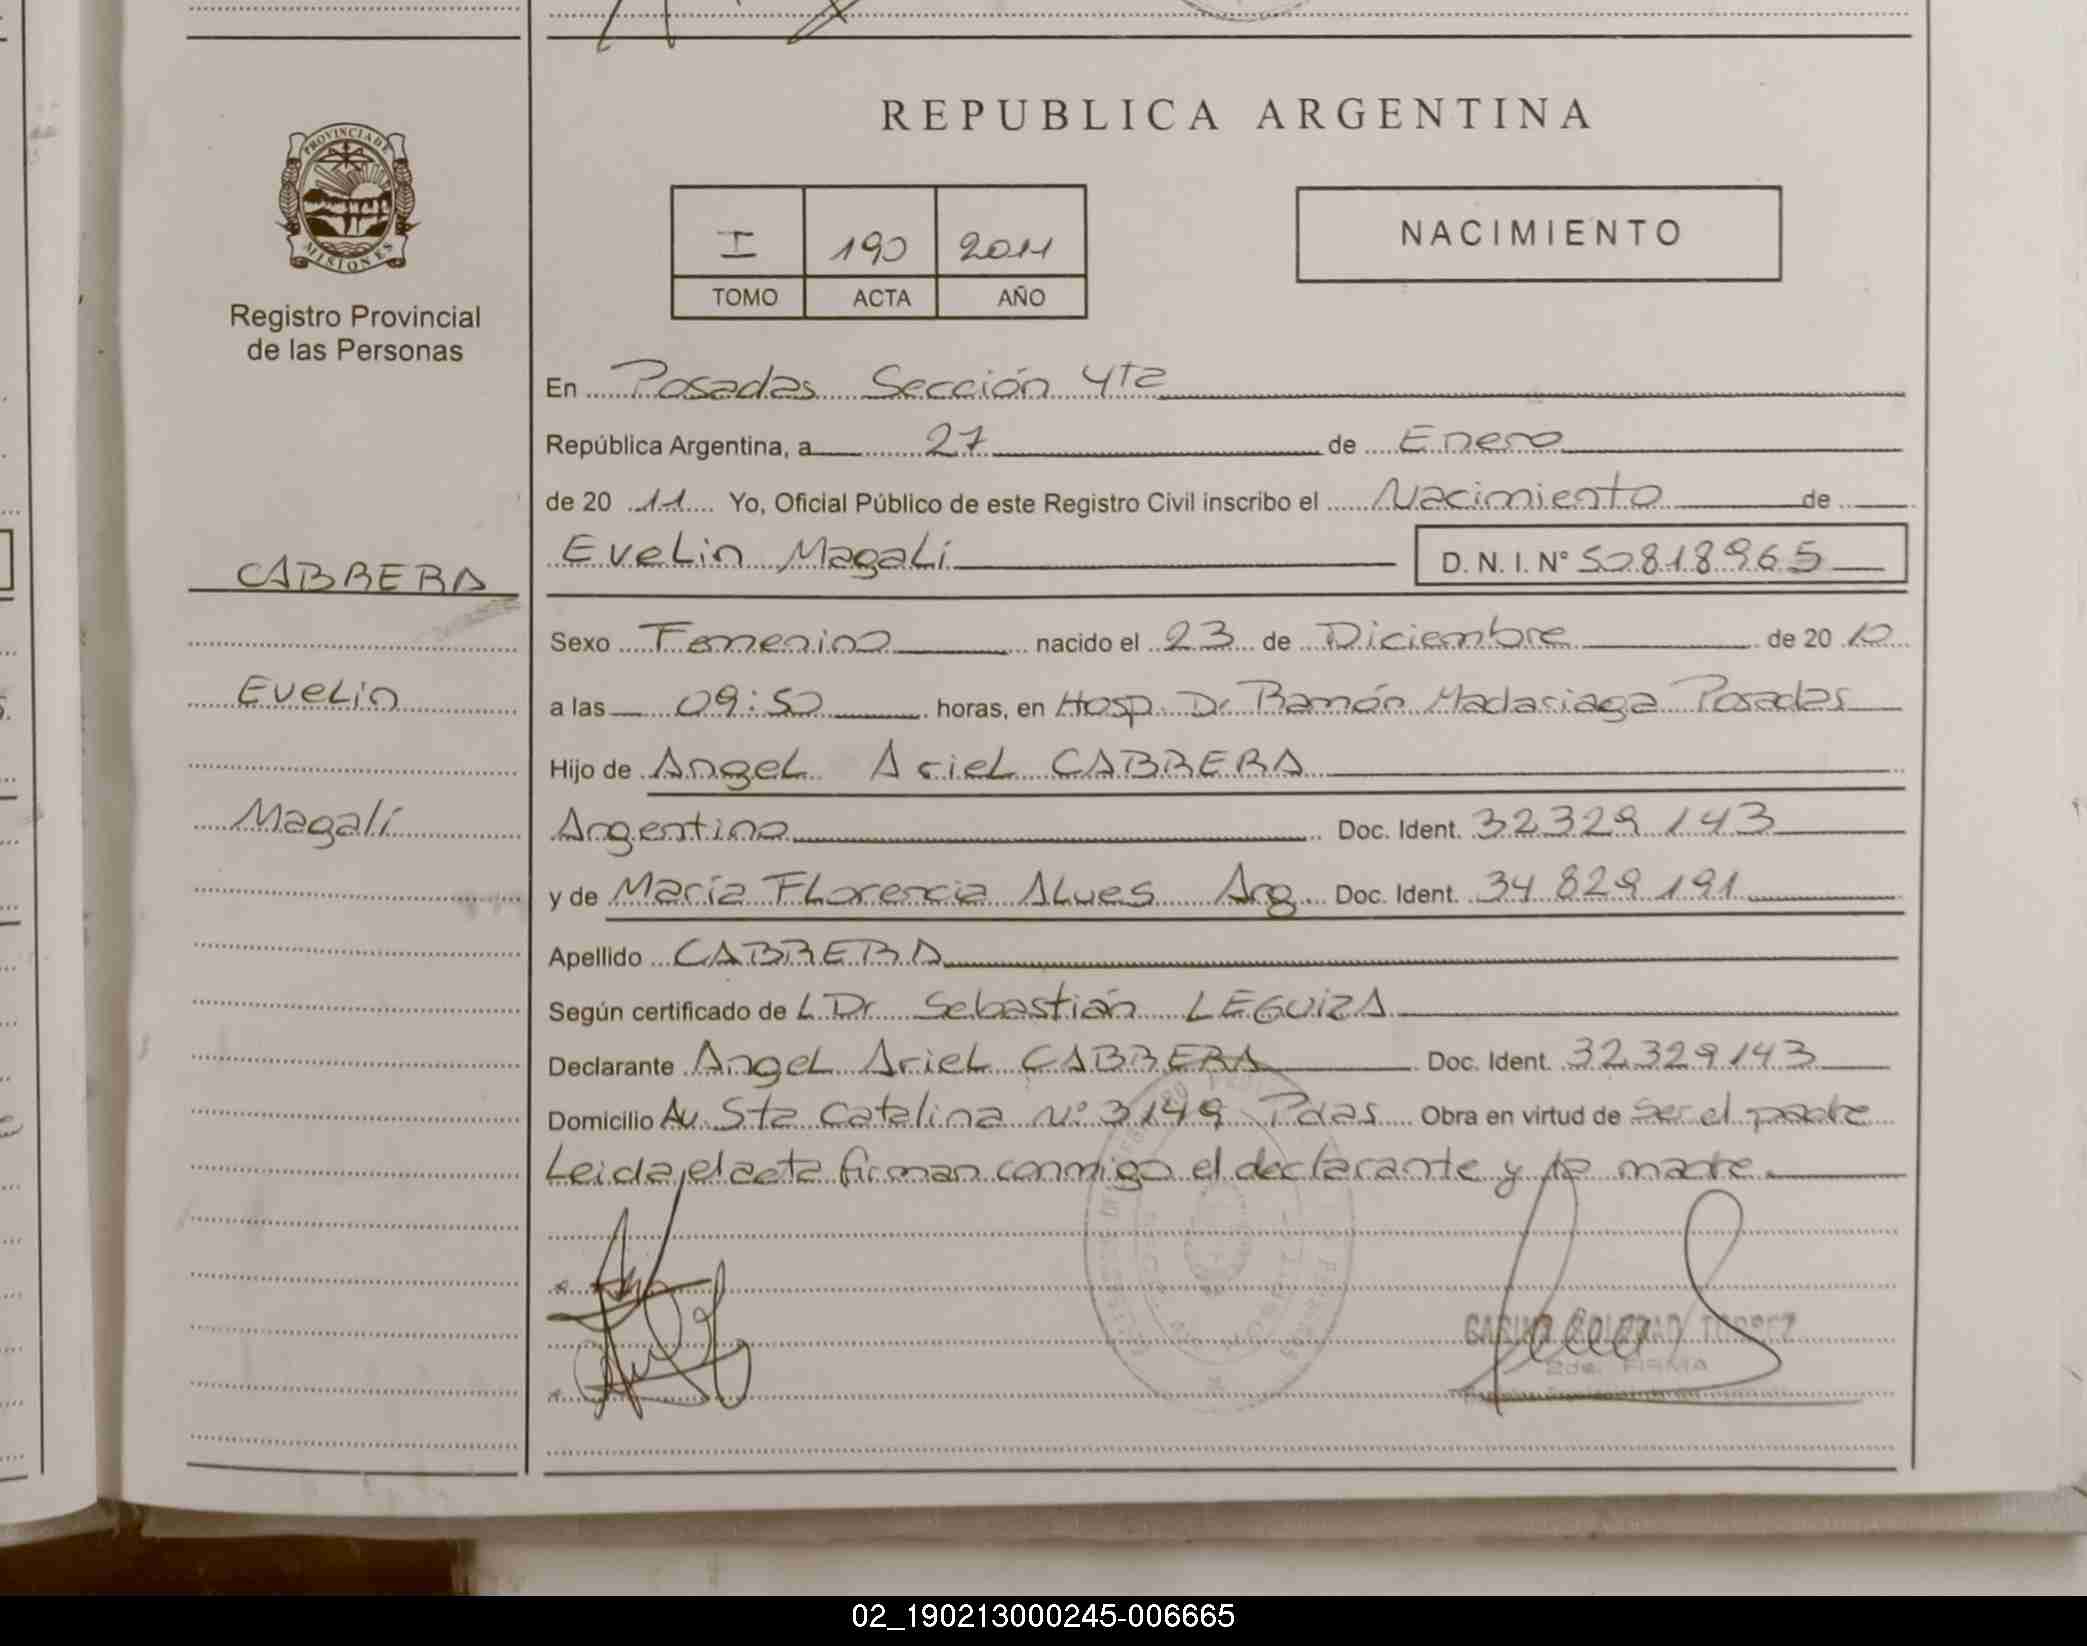 REPUBLICA ARGENTINA
PROVINCIA DE
MISIONES
Registro Provincial
de las Personas
I 190 2011
TOMO ACTA AÑO
NACIMIENTO
En Posadas Sección 4ta
República Argentina, a 27 de Enero
de 20 11 Yo, Oficial Público de este Registro Civil inscribo el Nacimiento de
Evelin Magalí D. N. I. Nº 50818965
CABRERA
Sexo Femenino nacido el 23 de Diciembre de 20 10
Evelin
a las 09:50 horas, en Hosp. Dr Ramón Madariaga Posadas
Hijo de Angel Ariel CABRERA
Magalí
Argentino Doc. Ident. 32329143
y de María Florencia Alves Arg. Doc. Ident. 34.829.191
Apellido CABRERA
Según certificado de L Dr Sebastián LEGUIZA
Declarante Angel Ariel CABRERA Doc. Ident. 32329143
Domicilio Av. Sta Catalina Nº 3149 Pdas Obra en virtud de ser el padre
Leida el acta firman conmigo el declarante y la madre
SOLEDAD
FIRMA
02_190213000245-006665